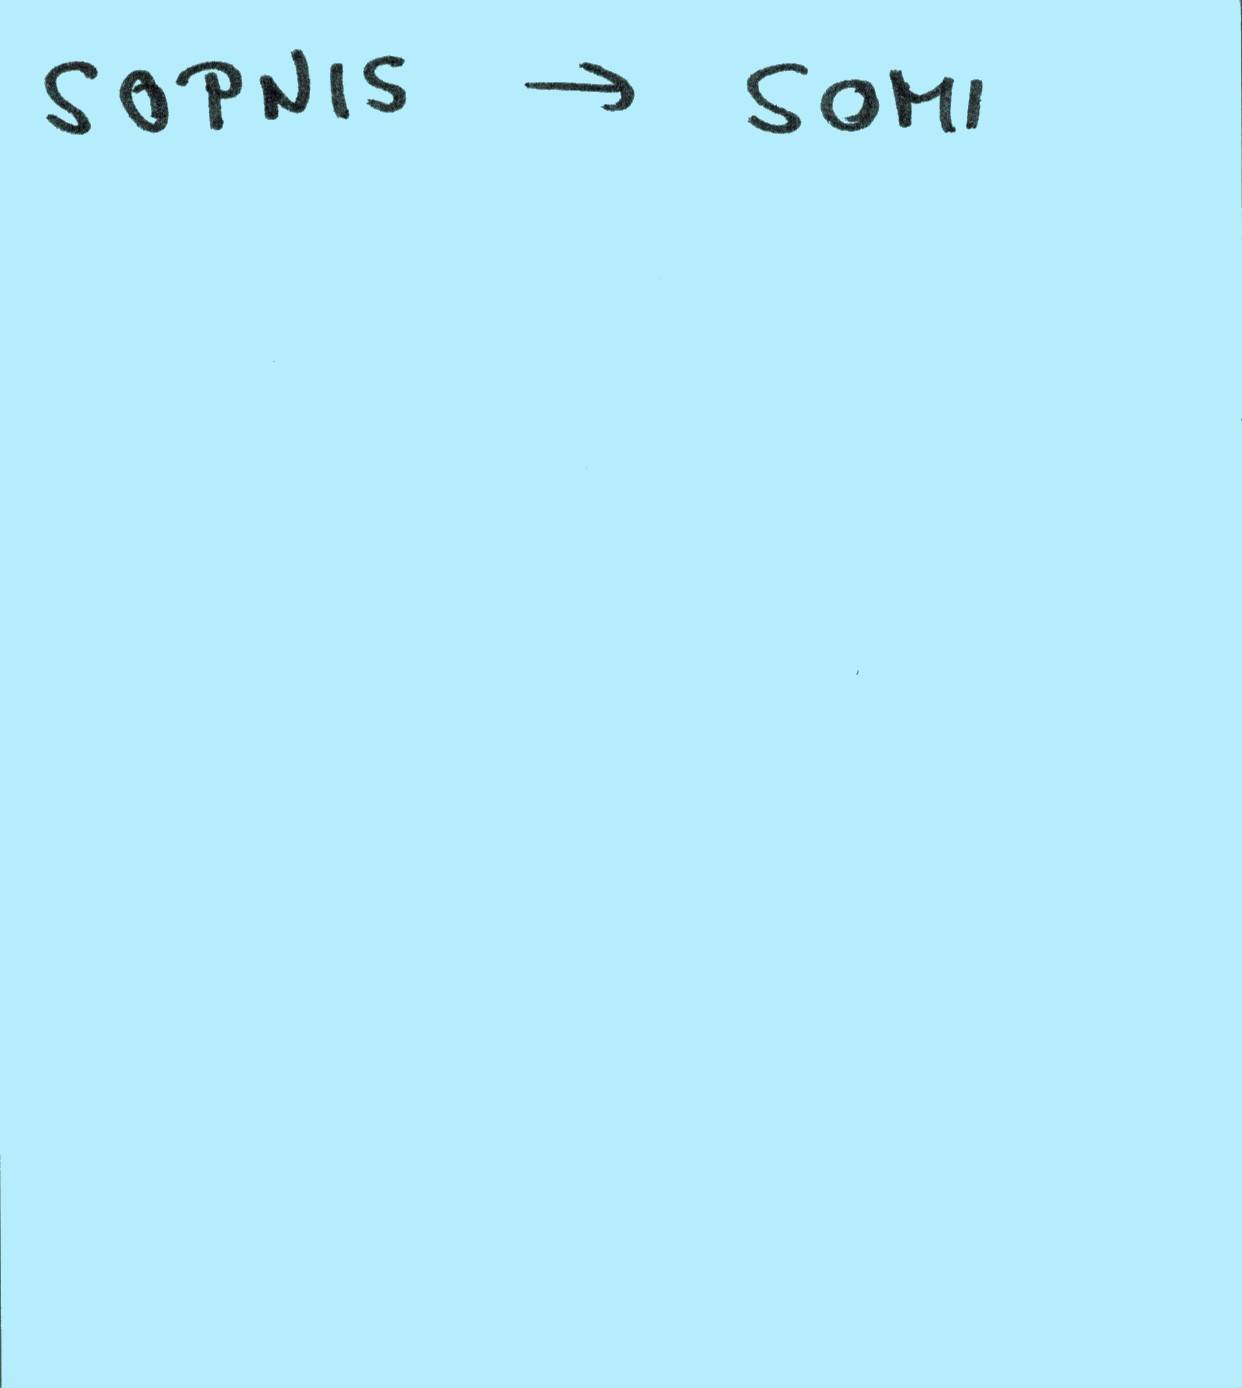 SOPNIS → SOMI